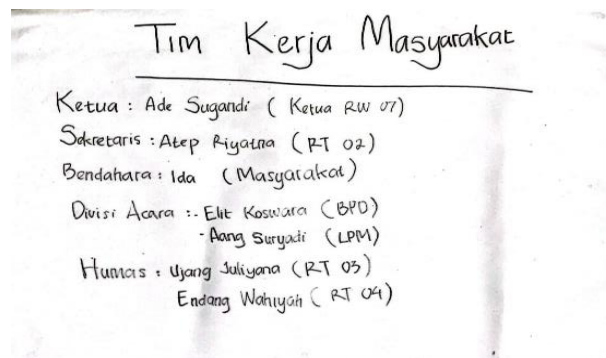 Tim Kerja Masyarakat
Ketua : Ade Sugandi ( Ketua RW 07)
Sekretaris : Atep Riyatna (RT 02)
Bendahara : Ida (Masyarakat)
Divisi Acara :- Elit Koswara (BPD)
- Aang Suryadi (LPM)
Humas : Ujang Juliyana (RT 03)
Endang Wahiyah ( RT 04)